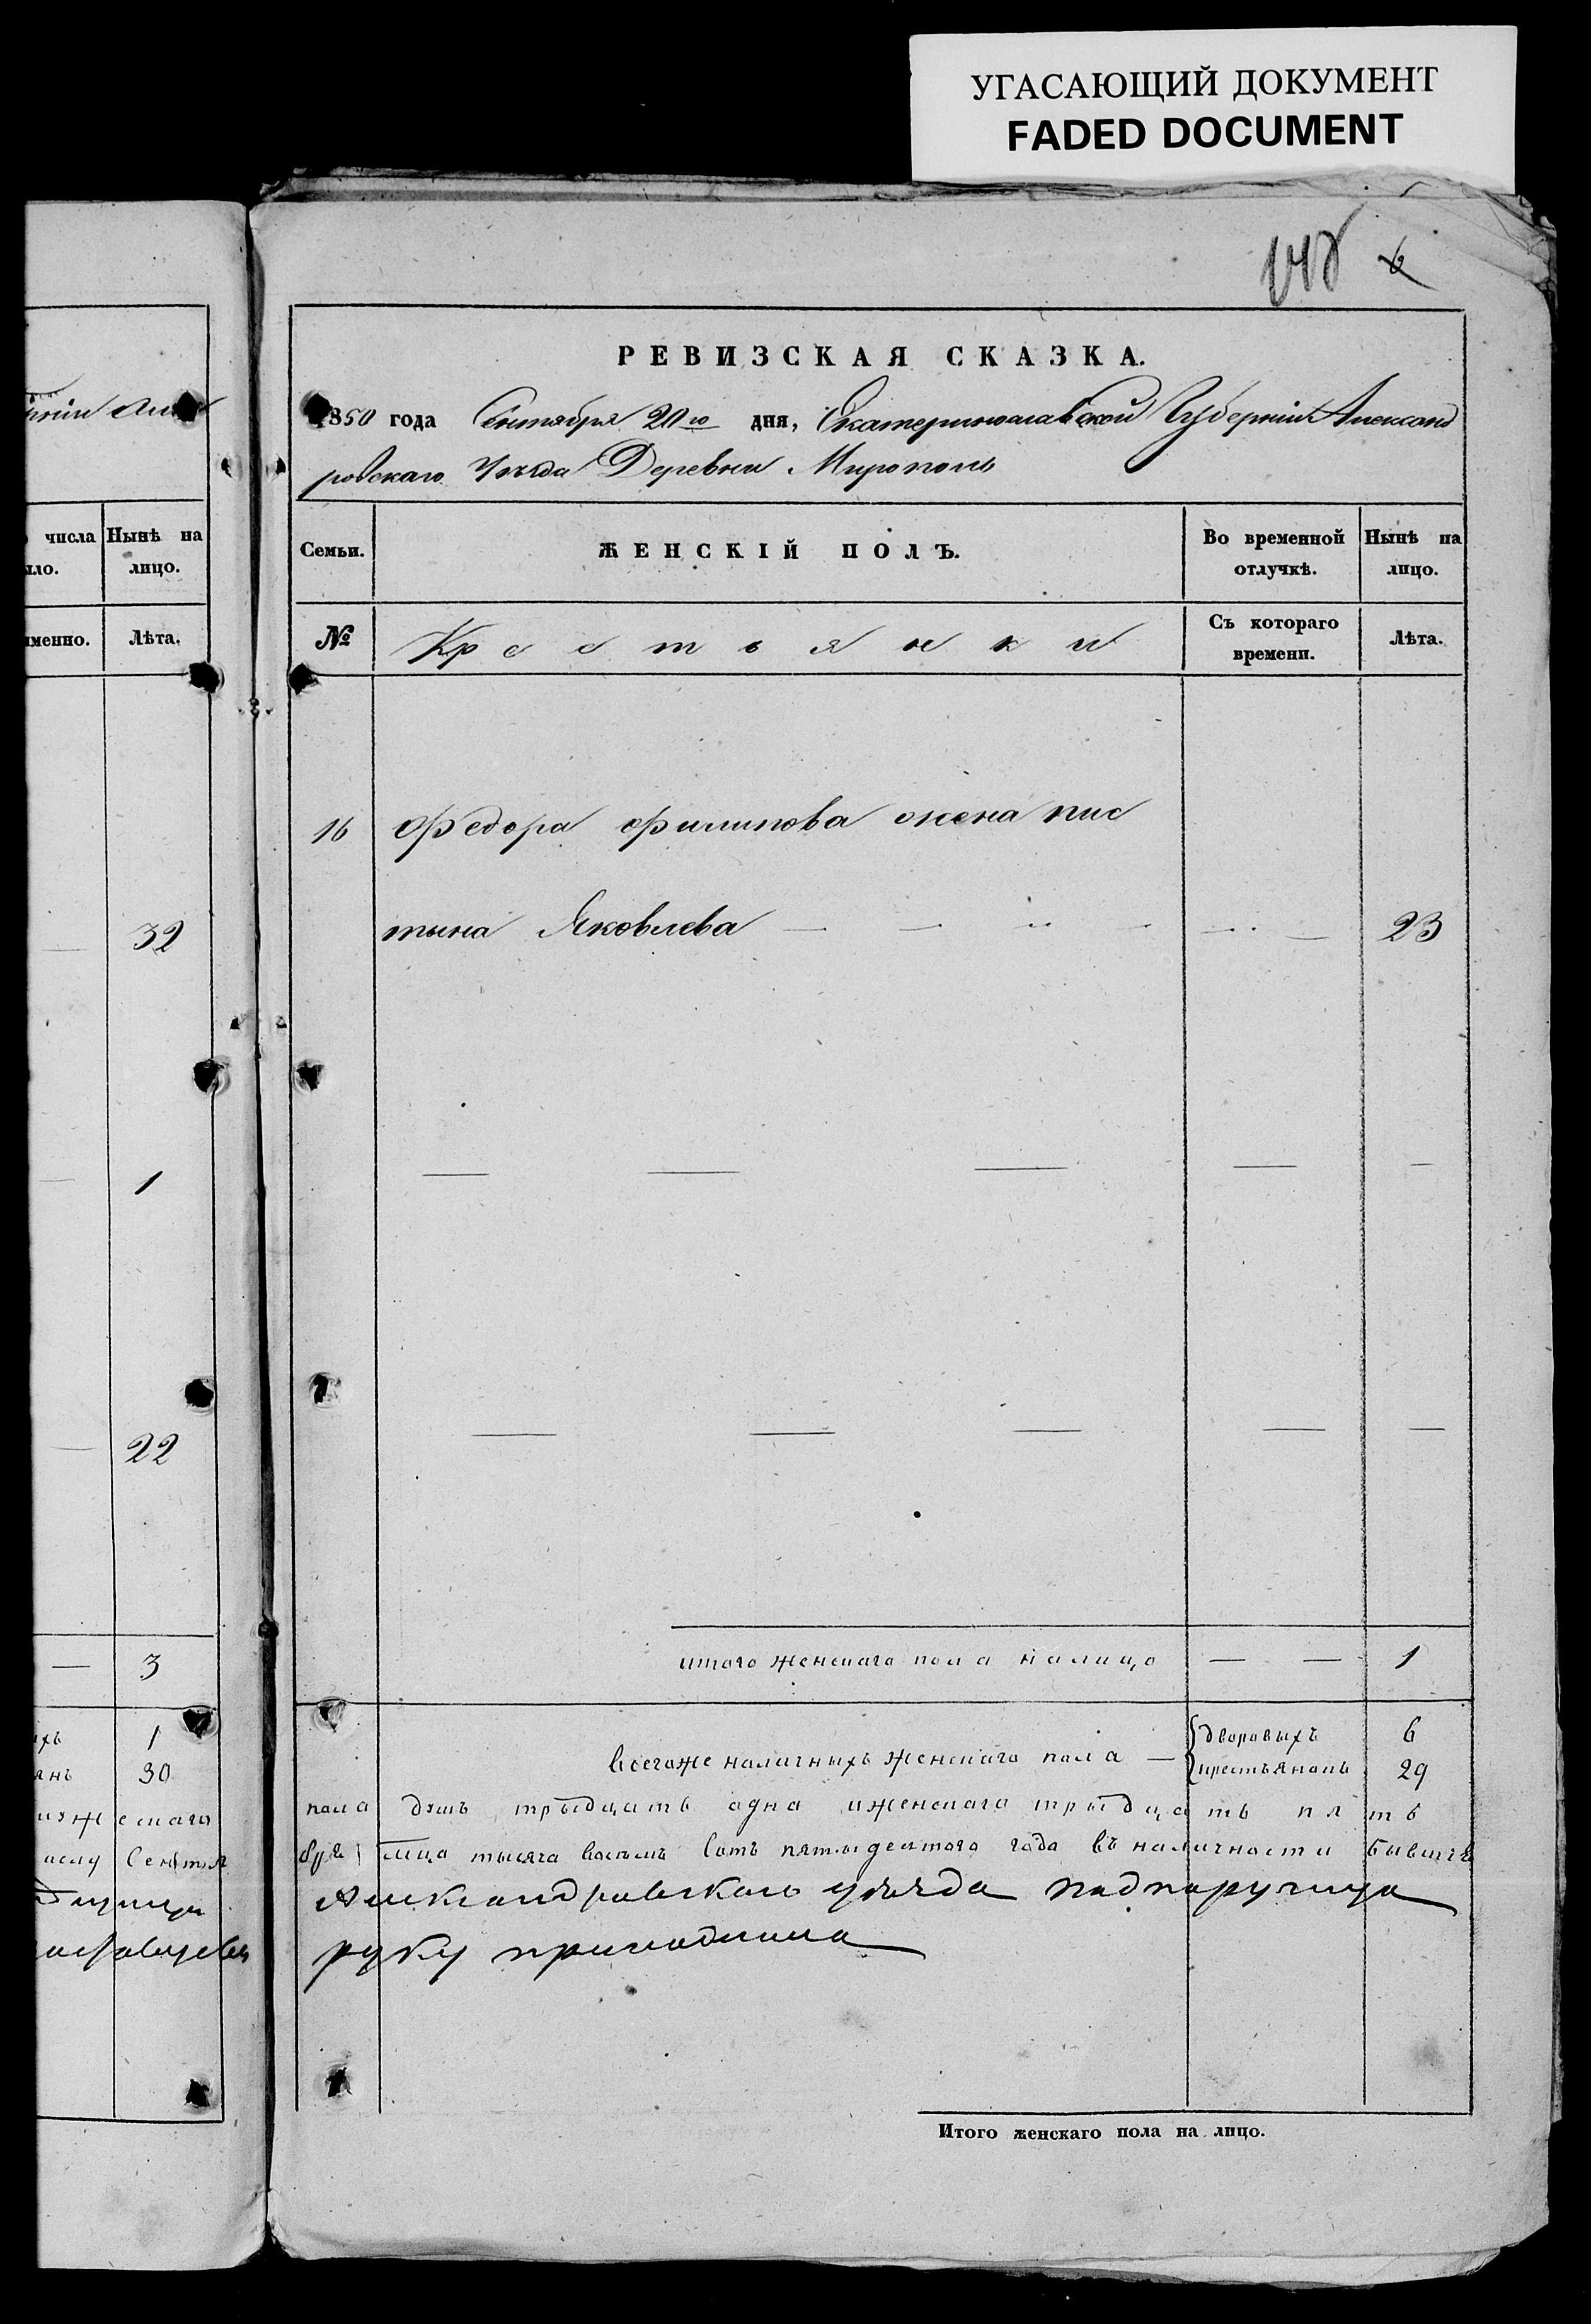 УГАСАЮЩИЙ ДОКУМЕНТ
FADED DOCUMENT
148 6
РЕВИЗСКАЯ СКАЗКА.
1850 года Сентября 20го дня, Екатеринославской Губернiи Александ
ровскаго Уѣзда Деревни Мирополь
числа Нынѣ на
ыло. лицо.
именно. Лѣта.
Семьи. ЖЕНСКIЙ ПОЛЪ. Во временной отлучкѣ. Нынѣ на лицо.
№ Крестьянки Съ котораго времени. Лѣта.
32
1
22
3
1
30
16 Федора Филипова жена пис
тына Яковлева 23
итого женскаго пола налицо 1
всегоже наличныхъ женскаго пола дворовыхъ 6
крестьянокъ 29
пола душъ трыдцать одна иженскаго трыдцать пять
тысяча восемь сотъ пятыдесятого года въ наличности бывшчъ
Александровскаго уѣзда подпоручица
руку приложила
Итого женскаго пола на лицо.